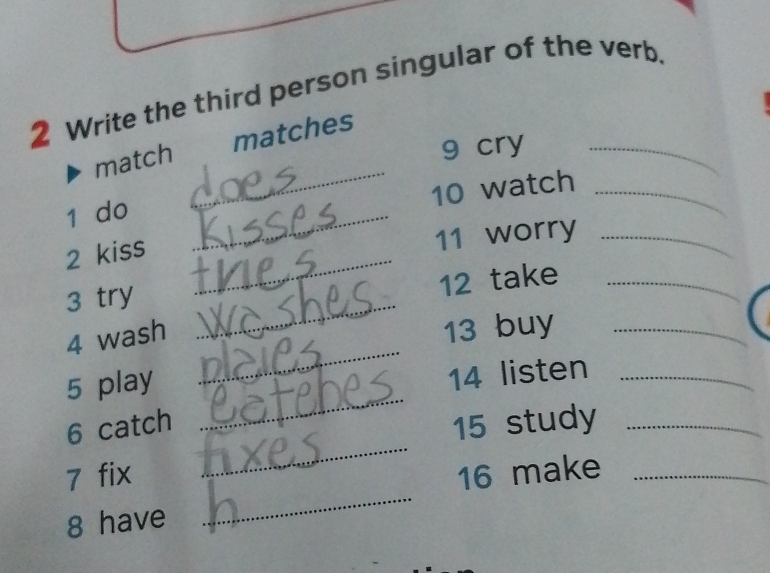 2 Write the third person singular of the verb.
match matches
1 do does
2 kiss kisses
3 try tries
4 wash washes
5 play plaies
6 catch catches
7 fix fixes
8 have h
9 cry
10 watch
11 worry
12 take
13 buy
14 listen
15 study
16 make